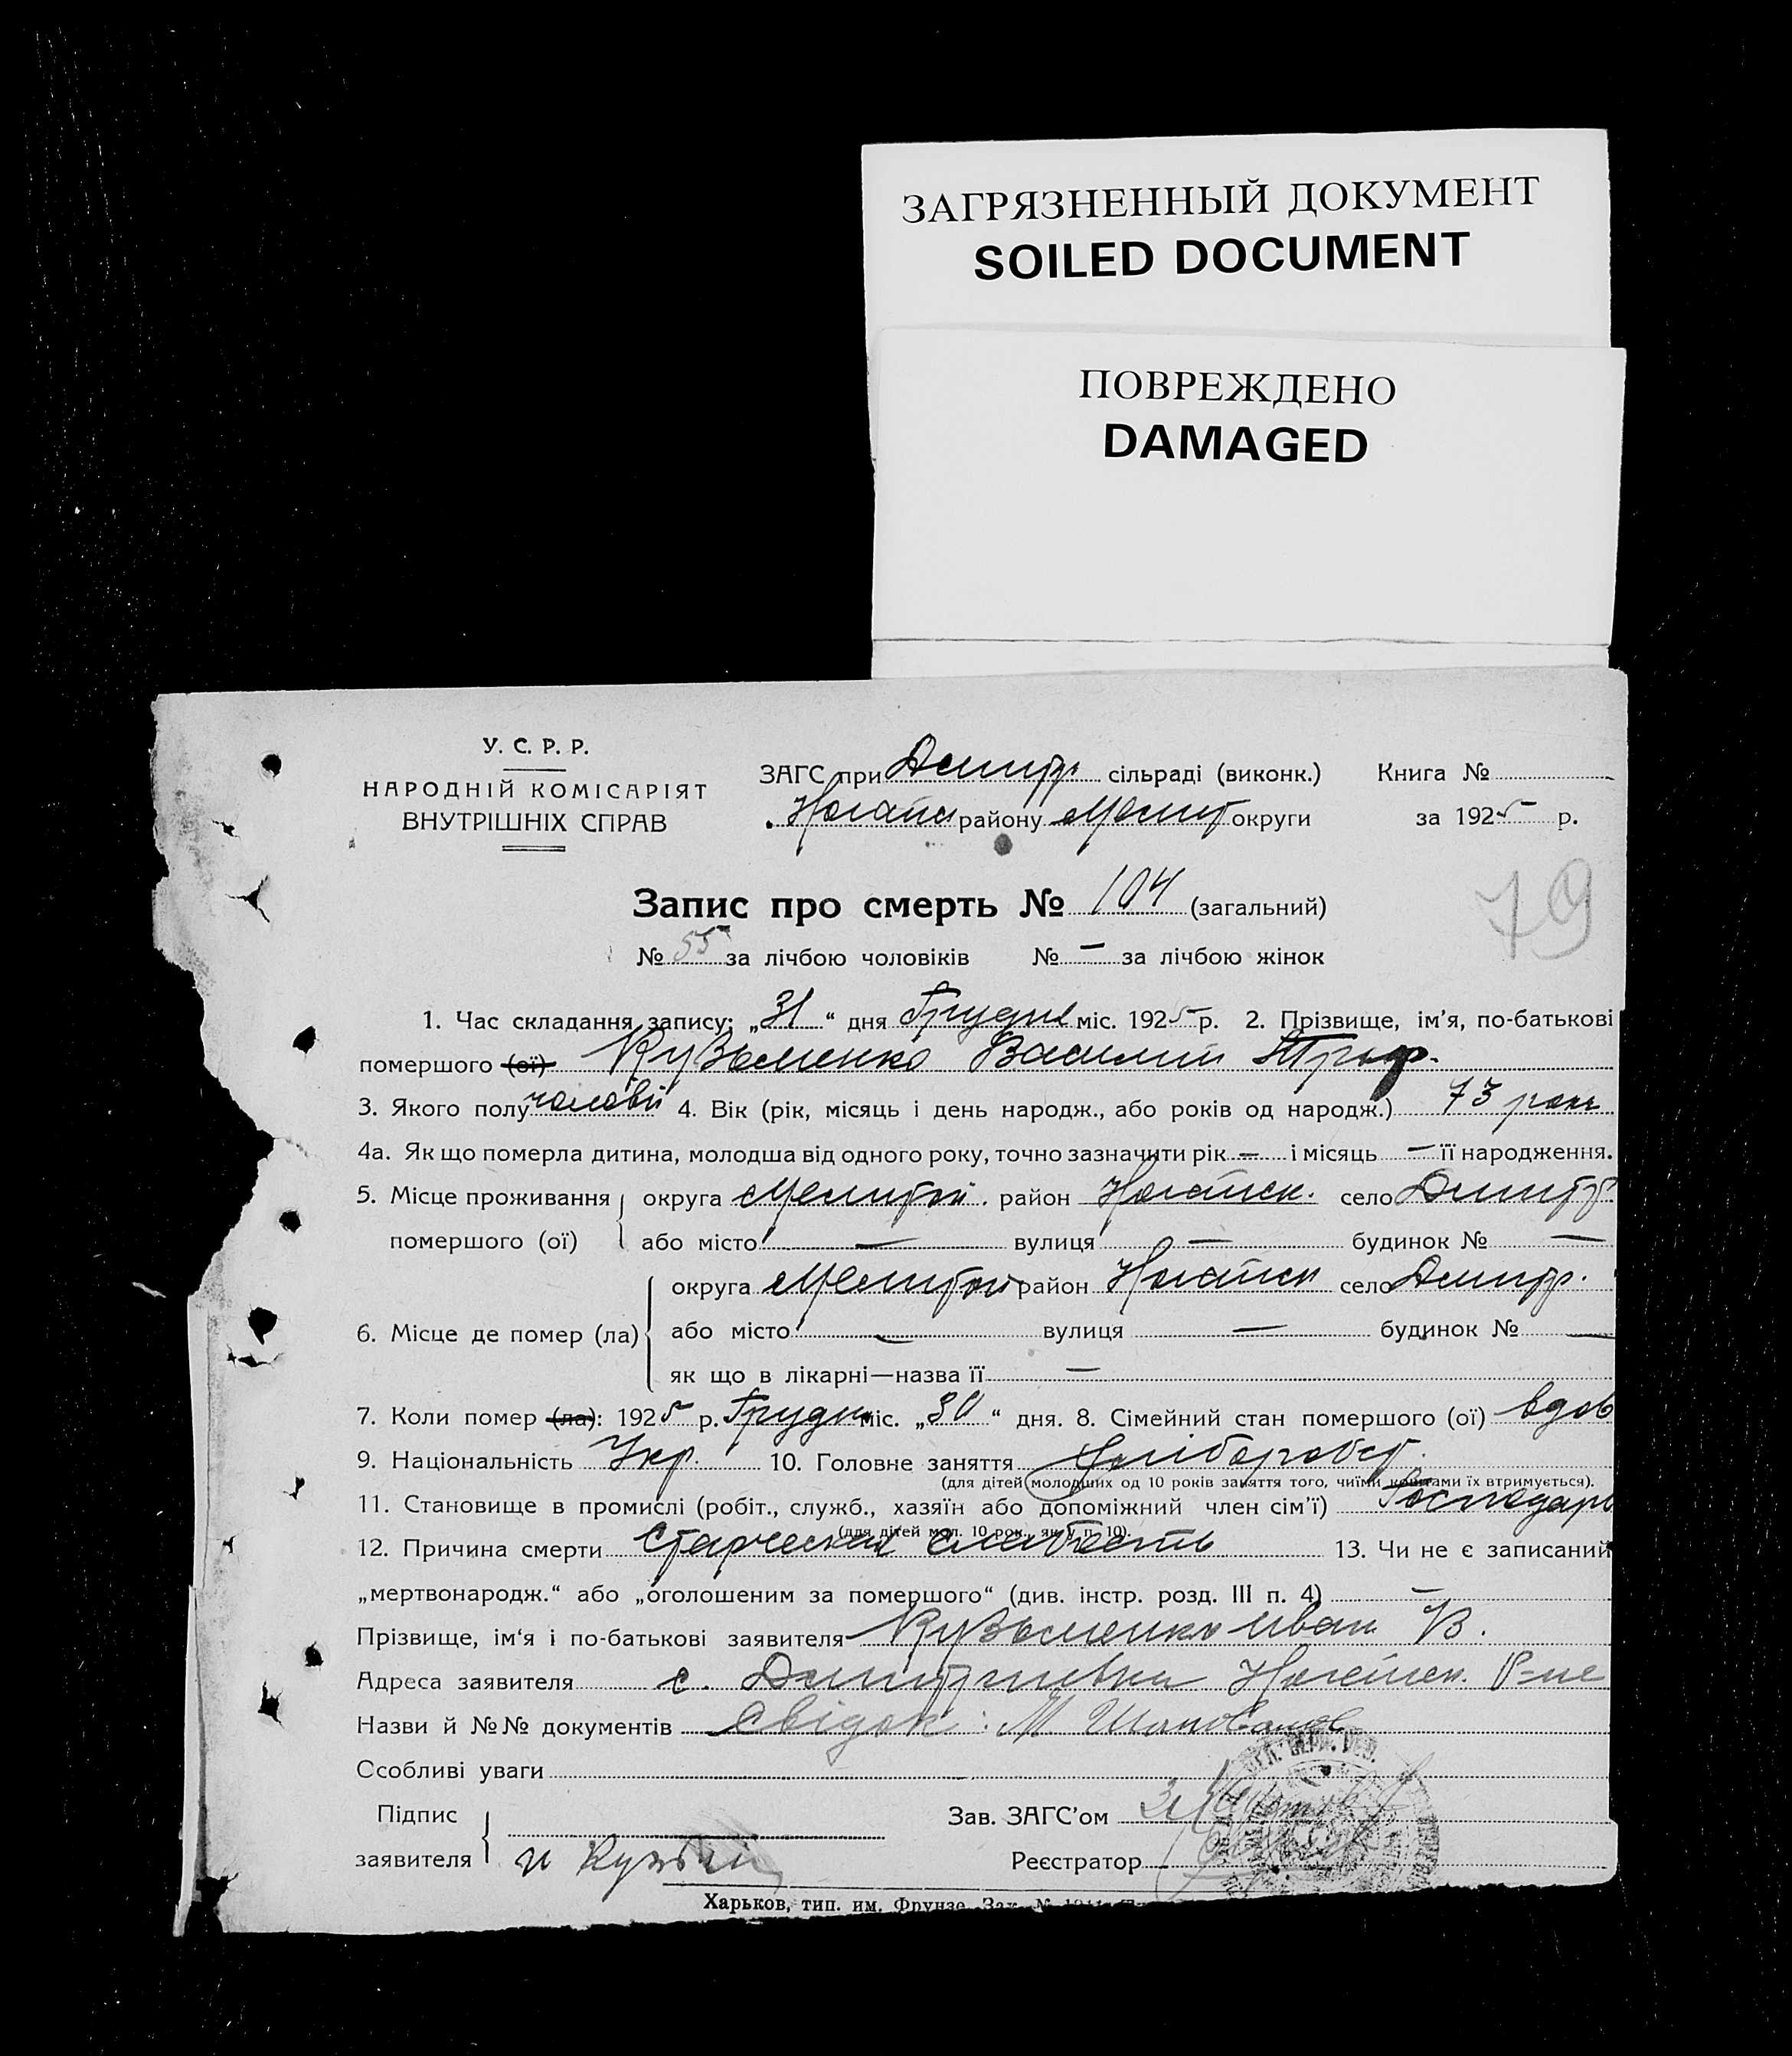 ЗАГРЯЗНЕННЫЙ ДОКУМЕНТ
SOILED DOCUMENT
ПОВРЕЖДЕНО
DAMAGED
У. С. Р. Р.
НАРОДНІЙ КОМІСАРІЯТ
ВНУТРІШНІХ СПРАВ
ЗАГС при Дмитр. сільраді (виконк.) Книга №
Ногайск району Мелит округи за 1925 р.
79
Запис про смерть № 104 (загальний)
№ 55 за лічбою чоловіків № — за лічбою жінок
1. Час складання запису: „31“ дня Грудня міс. 1925 р. 2. Прізвище, ім'я, по-батькові
помершого (ої) Кузьменко Василий Триф.
3. Якого полу чоловій 4. Вік (рік, місяць і день народж., або років од народж.) 73 роки
4а. Як що померла дитина, молодша від одного року, точно зазначити рік — і місяць — її народження.
5. Місце проживання округа Мелитой. район Ногайск. село Дмитр.
помершого (ої) або місто — вулиця — будинок № —
округа Мелитой район Ногайск село Дмитр.
6. Місце де помер (ла) або місто — вулиця — будинок № —
як що в лікарні—назва її —
7. Коли помер (ла): 1925 р. Грудня міс. „30“ дня. 8. Сімейний стан помершого (ої) вдов
9. Національність Укр. 10. Головне заняття Хлібороб
(для дітей молодших од 10 років заняття того, чиїми коштами їх втримується).
11. Становище в промислі (робіт., служб., хазяїн або допоміжний член сім'ї) Господарь
(для дітей мол. 10 рок., як у п. 10).
12. Причина смерти Старческая слабость 13. Чи не є записаний
„мертвонародж.“ або „оголошеним за помершого“ (див. інстр. розд. III п. 4) —
Прізвище, ім'я і по-батькові заявителя Кузьменко Иван В.
Адреса заявителя с. Дмитривка Ногайск. Р-не
Назви й №№ документів Свідок: М. Шаповалов
Ссобливі уваги
Підпис Зав. ЗАГС'ом
заявителя И Кузьмен Реєстратор
Харьков, тип. им. Фрунзе. Зак. №